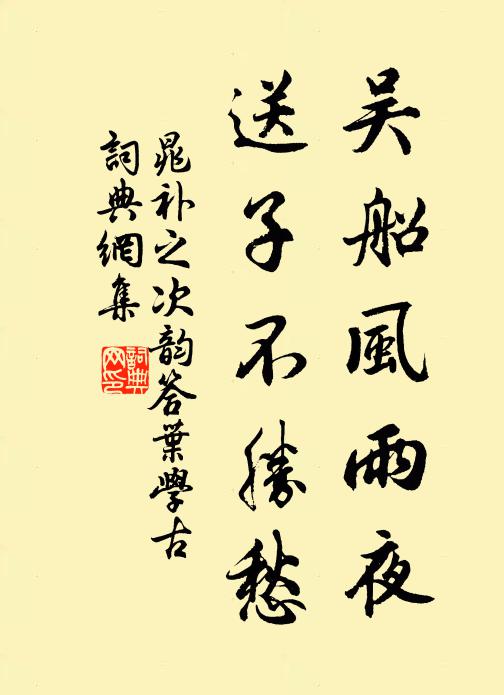 吴船風雨夜
送子不勝愁
晁补之次韵答葉學古
詞典網集
詞典網印